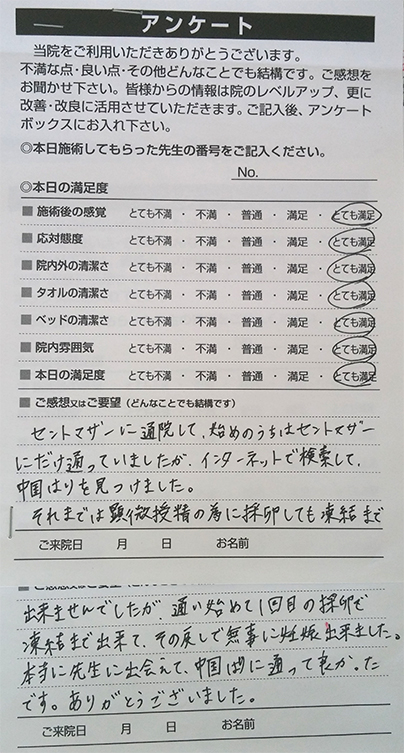 アンケート
当院をご利用いただきありがとうございます。
不満な点・良い点・その他どんなことでも結構です。ご感想を
お聞かせ下さい。皆様からの情報は院のレベルアップ、更に
改善・改良に活用させていただきます。ご記入後、アンケート
ボックスにお入れ下さい。
◎本日施術してもらった先生の番号をご記入ください。
No.
◎本日の満足度
■施術後の感覚 とても不満・不満・普通・満足・とても満足
■応対態度 とても不満・不満・普通・満足・とても満足
■院内外の清潔さ とても不満・不満・普通・満足・とても満足
■タオルの清潔さ とても不満・不満・普通・満足・とても満足
■ベッドの清潔さ とても不満・不満・普通・満足・とても満足
■院内雰囲気 とても不満・不満・普通・満足・とても満足
■本日の満足度 とても不満・不満・普通・満足・とても満足
■ご感想又はご要望（どんなことでも結構です）
セントマザーに通院して、始めのうちはセントマザー
にだけ通っていましたが、インターネットで検索して、
中国はりを見つけました。
それまでは顕微授精の為に採卵しても凍結まで
ご来院日 月 日 お名前
出来ませんでしたが、通い始めて1回目の採卵で
凍結まで出来て、その戻しで無事に妊娠出来ました。
本当に先生に出会えて、中国はりに通って良かった
です。ありがとうございました。
ご来院日 月 日 お名前